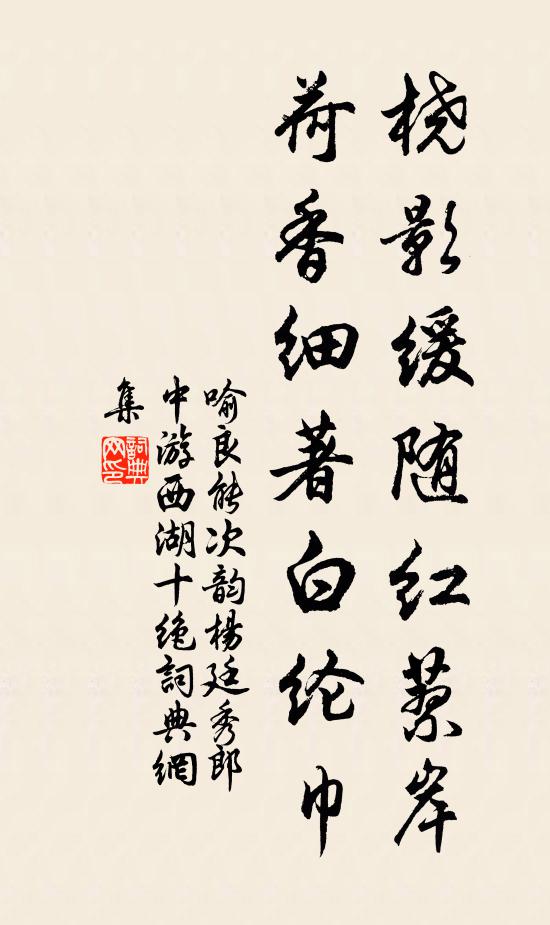 桡影缓随红蓼岸
荷香细著白纶巾
喻良能次韵楊廷秀郎
中游西湖十绝詞典網
集
詞典
网